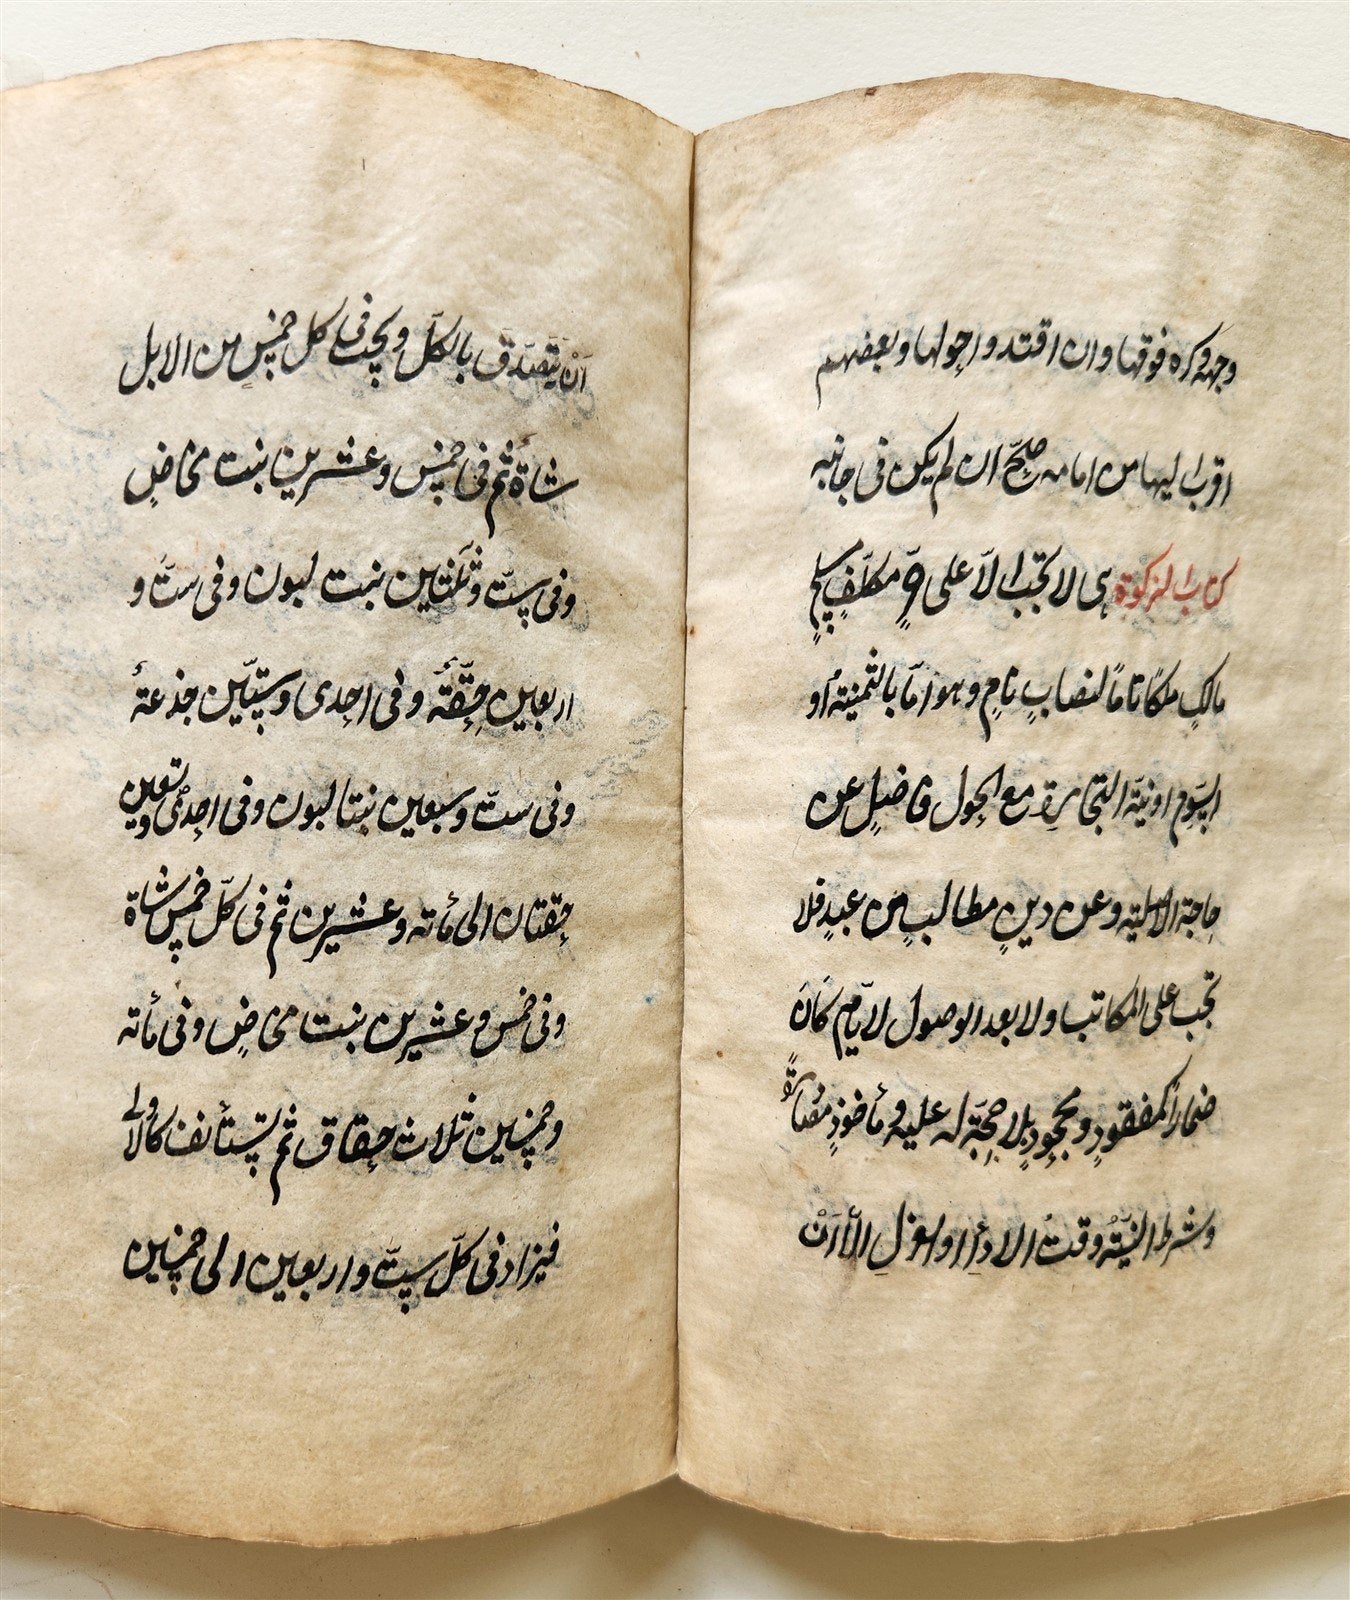 وجهه وكره فوقها وان اقتدوا حولها وبعضهم
اقرب اليها من امامه صحّ ان لم يكن في جانبه
كتاب الزكوة هي لا تجب الّا على حرٍّ مكلّفٍ مسلمٍ
مالكٍ ملكًا تامًا لنصابٍ نامٍ وهو امّا بالثمنيّة او
السّوم او نيّة التجارة مع الحول فاضلٍ عن
حاجة الاصليّة وعن دينٍ مطالبٍ من عبدٍ فلا
تجب على المكاتب ولا بعد الوصول لايّام كَانَ
ضمارًا كمفقودٍ ومجحودٍ بلا حجّة له عليه ومأخوذٍ مصادرةً
وشرط النيّة وقت الاداء او العزل الّا اَنْ
اَنْ يَتَصَدَقَ بالكلّ ويجب في كل خمسٍ من الابل
شاةٌ ثم في خمس وعشرين بنت مخاضٍ
وفي ستّ وثلثين بنت لبون وفي ستّ و
اربعين حِقّةٌ وفي احدى وستّين جذعةٌ
وفي ستّ وسبعين بنتا لبون وفي احدى وتسعين
حِقّتان الى مأئة وعشرين ثم في كلّ خمس شاة
وفي خمس وعشرين بنت مخاضٍ وفي مأئة
وخمسين ثلاث حِقاق ثم تستأنف كالاولى
فيزاد في كلّ ستّ واربعين الى خمسين